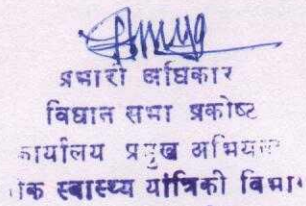 प्रभारी अधिकार
विधान सभा प्रकोष्ट
कार्यालय प्रमुख अभिय
क स्वास्थ्य यांत्रिकी विभा